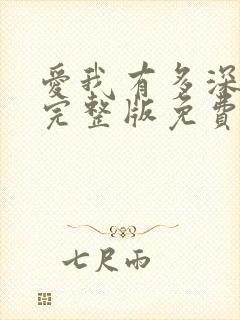 愛我有多深
完整版免費
七尺雨